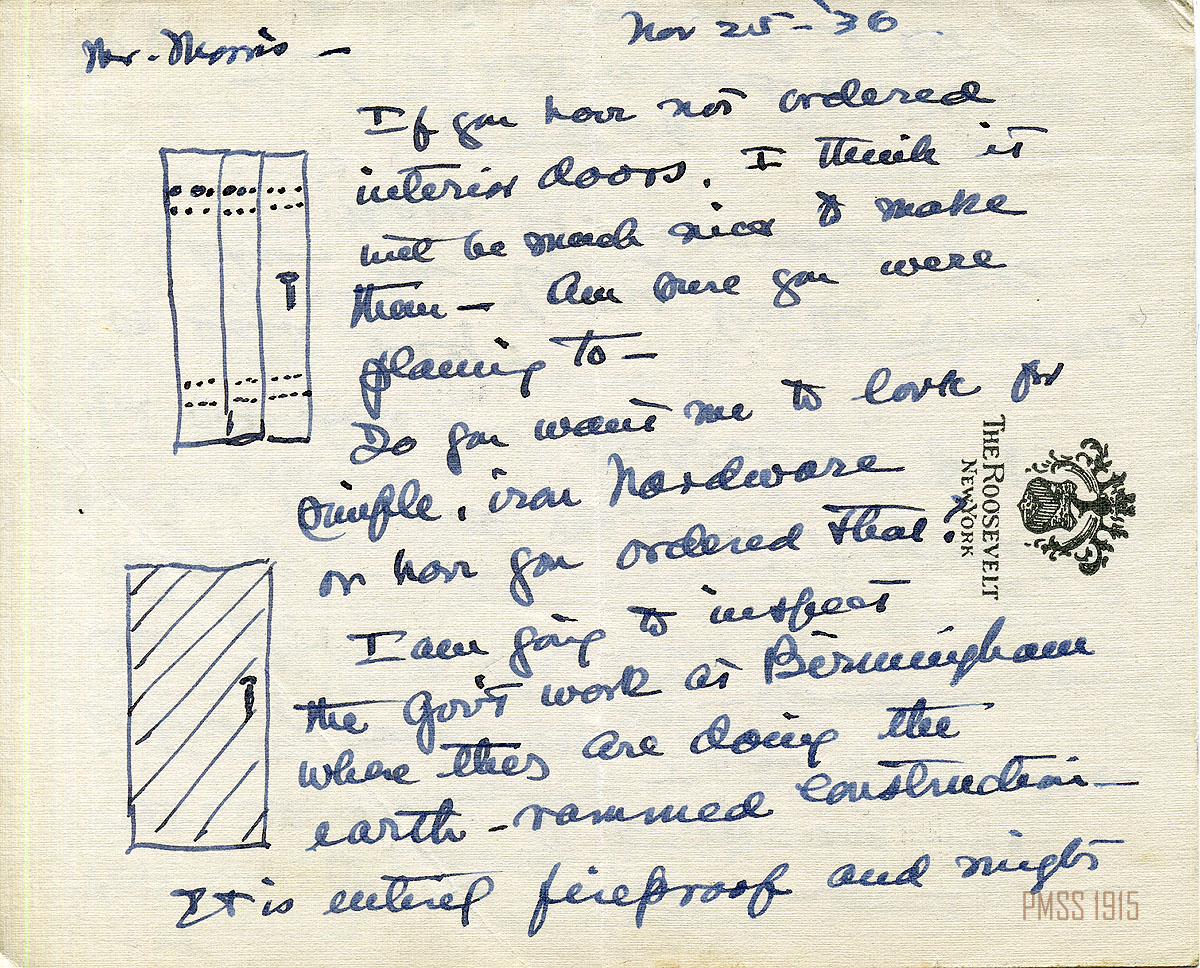 Nov 25 - '36
Mr. Morris -
If you have not ordered
interior doors. I think it
will be much nicer to make
them - Am sure you were
planing to -
Do you want me to look for
simple, iron hardware
or have you ordered that?
I am going to inspect
the Gov't work at Birmingham
where they are doing the
earth-rammed construction -
It is entirely fireproof and might
THE ROOSEVELT
NEW YORK
PMSS 1915